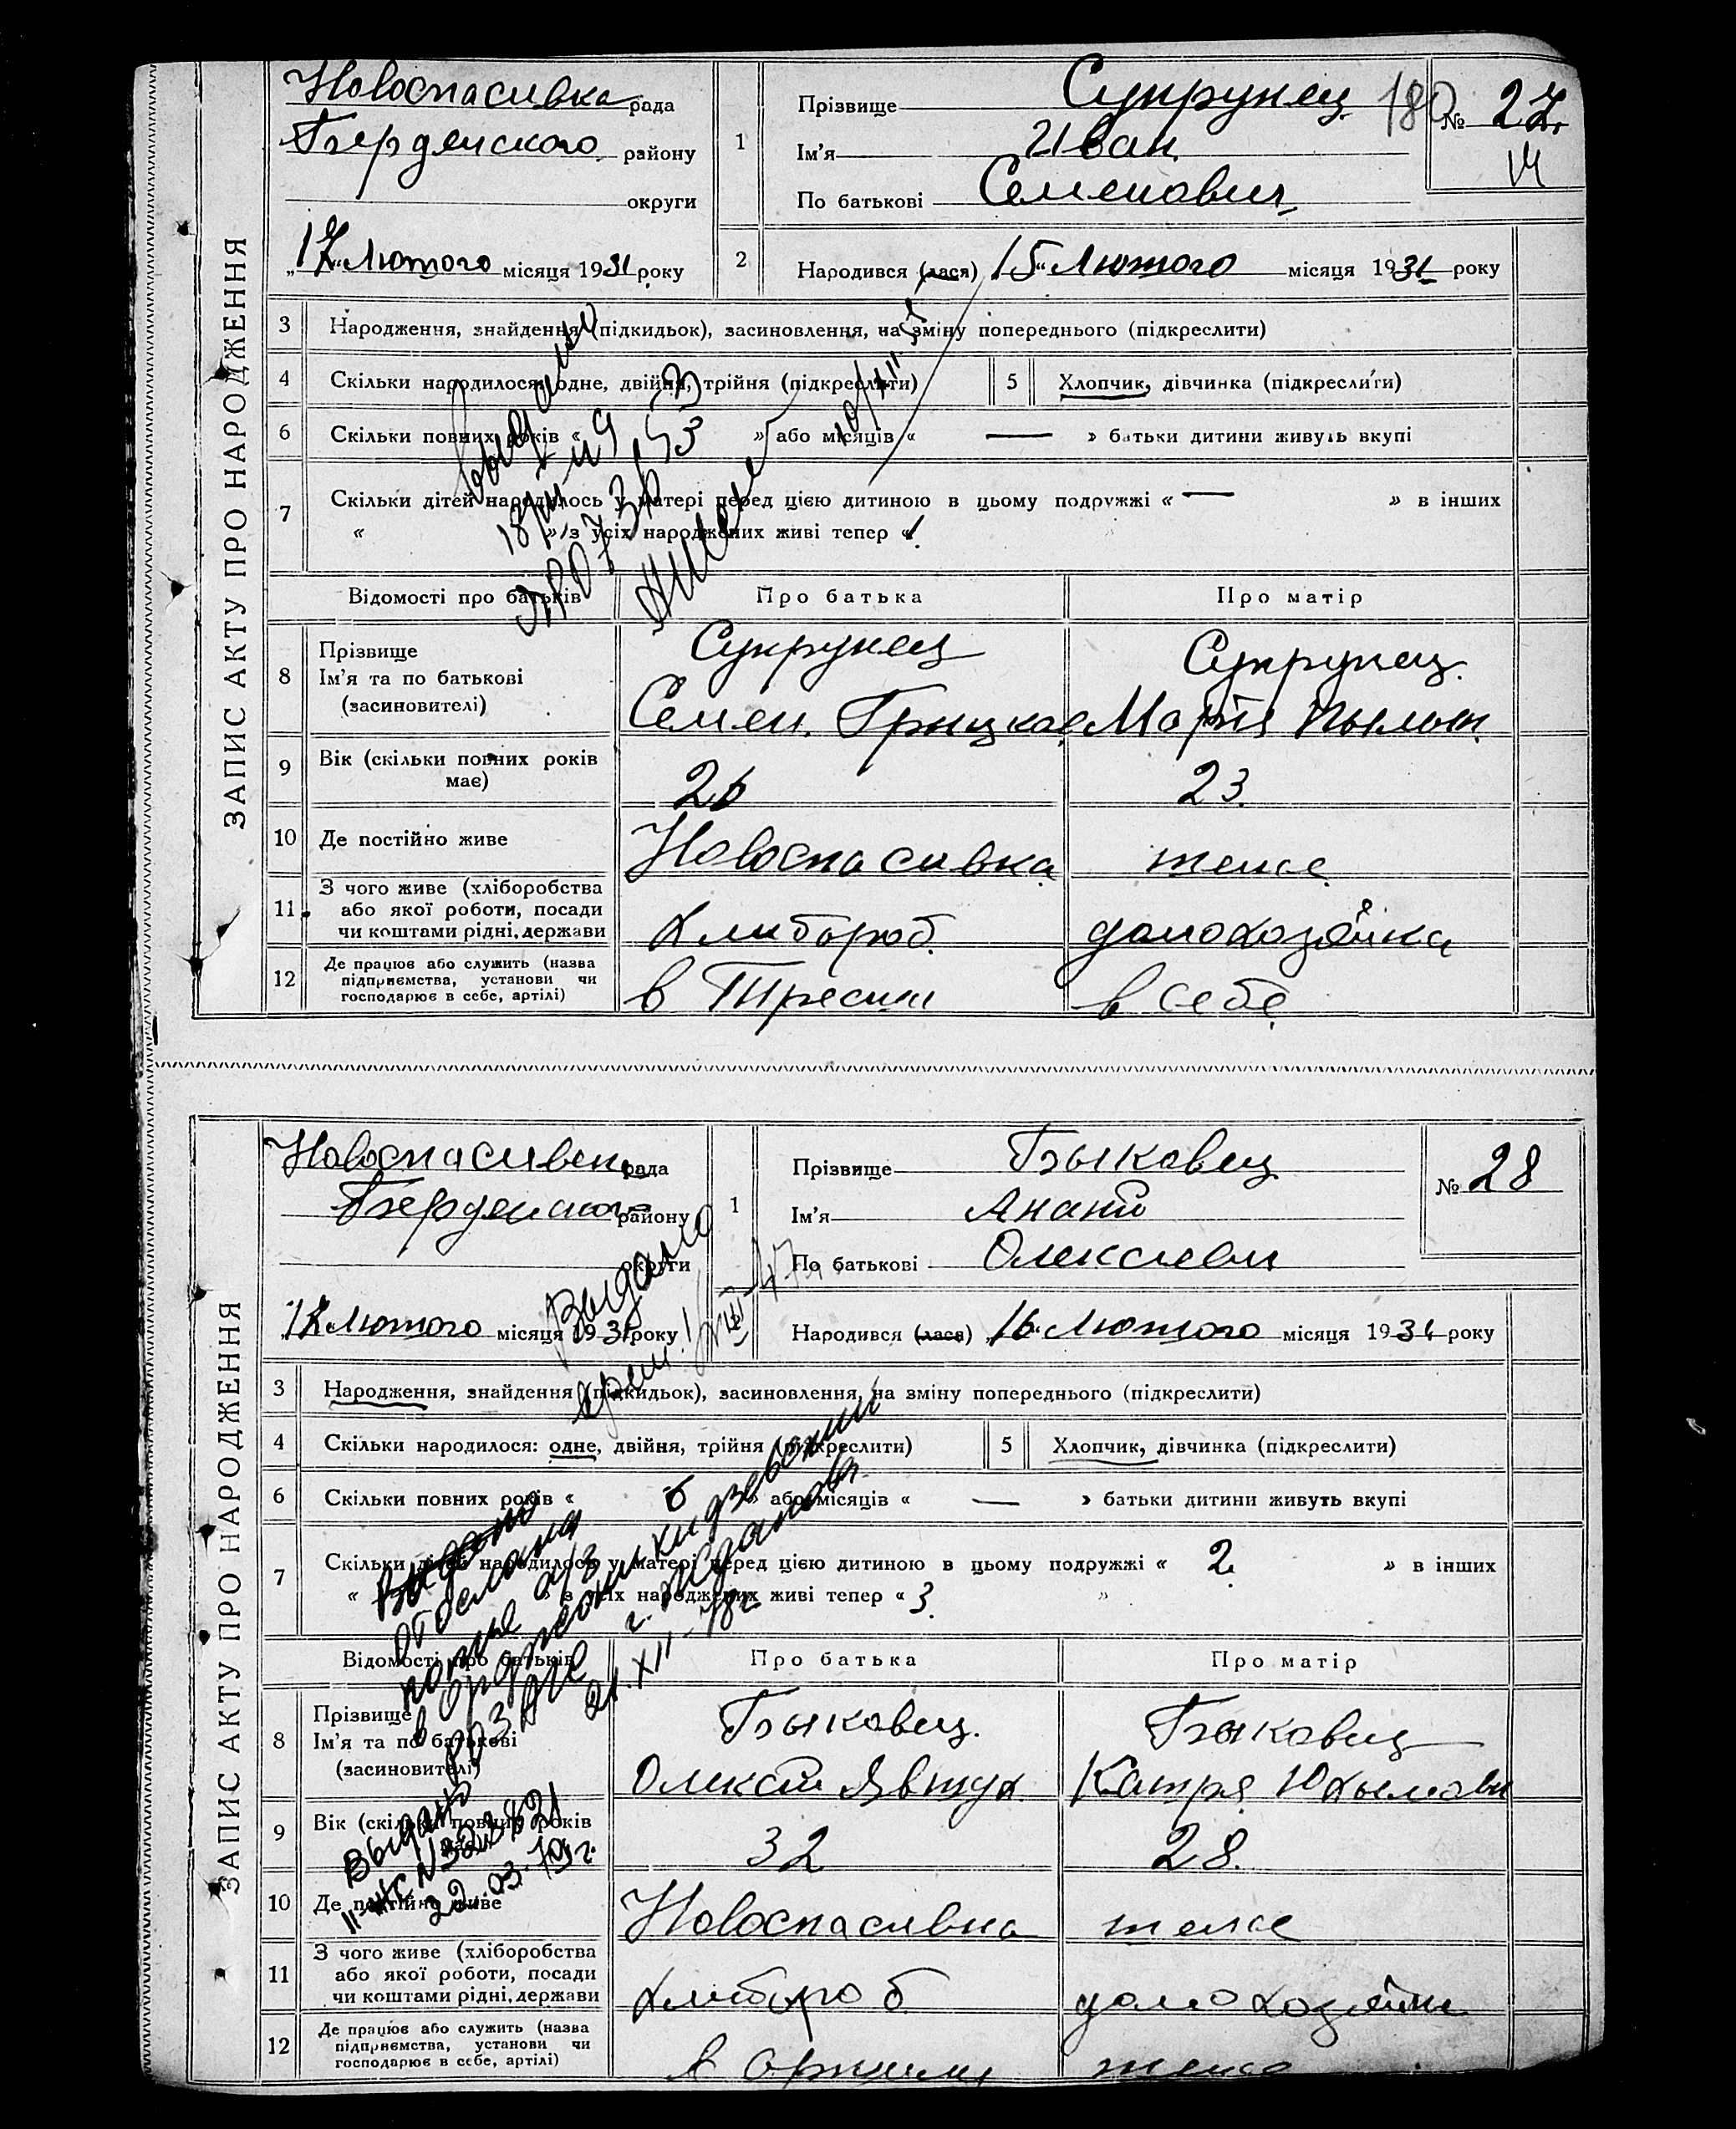 ЗАПИС АКТУ ПРО НАРОДЖЕННЯ
Новоспасивка рада
Бердянского району
округи
„17“ Лютого місяця 1931 року
1
Прізвище Супрунец
Ім'я Иван
По батькові Семенович
180
№ 27
2
Народився (лася) 15 „Лютого місяця 1931 року
3 Народження, знайдення (підкидьок), засиновлення, на зміну попереднього (підкреслити)
4 Скільки народилося: одне, двійня, трійня (підкреслити)
5 Хлопчик, дівчинка (підкреслити)
6 Скільки повних років « » або місяців « — » батьки дитини живуть вкупі
7 Скільки дітей народилось у матері перед цією дитиною в цьому подружжі « — » в інших
« » з усіх народжених живі тепер « 1
Відомості про батьків
Про батька
Про матір
8 Прізвище
Ім'я та по батькові
(засиновителі)
Супрунец
Семен. Грицков
Супрунец.
Мария Пылып.
9 Вік (скільки повних років має)
26
23.
10 Де постійно живе
Новоспасивка
теже
11 З чого живе (хліборобства
або якої роботи, посади
чи коштами рідні, держави
хлибороб.
домохозяйка
12 Де працює або служить (назва
підприємства, установи чи
господарює в себе, артілі)
в
в себе
ЗАПИС АКТУ ПРО НАРОДЖЕННЯ
Новоспасивск рада
Бердянского району
округи
„17“ Лютого місяця 1931 року
1
Прізвище Быковец
Ім'я
По батькові Олексиевич
№ 28
Народився (лася) „16“ Лютого місяця 1931 року
Выдано
3 Народження, знайдення (підкидьок), засиновлення, на зміну попереднього (підкреслити)
4 Скільки народилося: одне, двійня, трійня (підкреслити)
5 Хлопчик, дівчинка (підкреслити)
6 Скільки повних років « 6 » або місяців « — » батьки дитини живуть вкупі
7 Скільки дітей народилось у матері перед цією дитиною в цьому подружжі « 2. » в інших
« » з усіх народжених живі тепер « 3. »
Выдано
отослана
копие а/з
в Орджоникидзевский
РОЗАГС г. Жданова
21.XII-78г.
Відомості про батьків
Про батька
Про матір
8 Прізвище
Ім'я та по батькові
(засиновителі)
Быковец.
Олексий Явтух
Быковец
Катря
9 Вік (скільки повних років має)
32
28.
Выдано
22.03.79г.
10 Де постійно живе
Новоспасивка
теже
11 З чого живе (хліборобства
або якої роботи, посади
чи коштами рідні, держави
хлибороб
домохозяйка
12 Де працює або служить (назва
підприємства, установи чи
господарює в себе, артілі)
в
теже